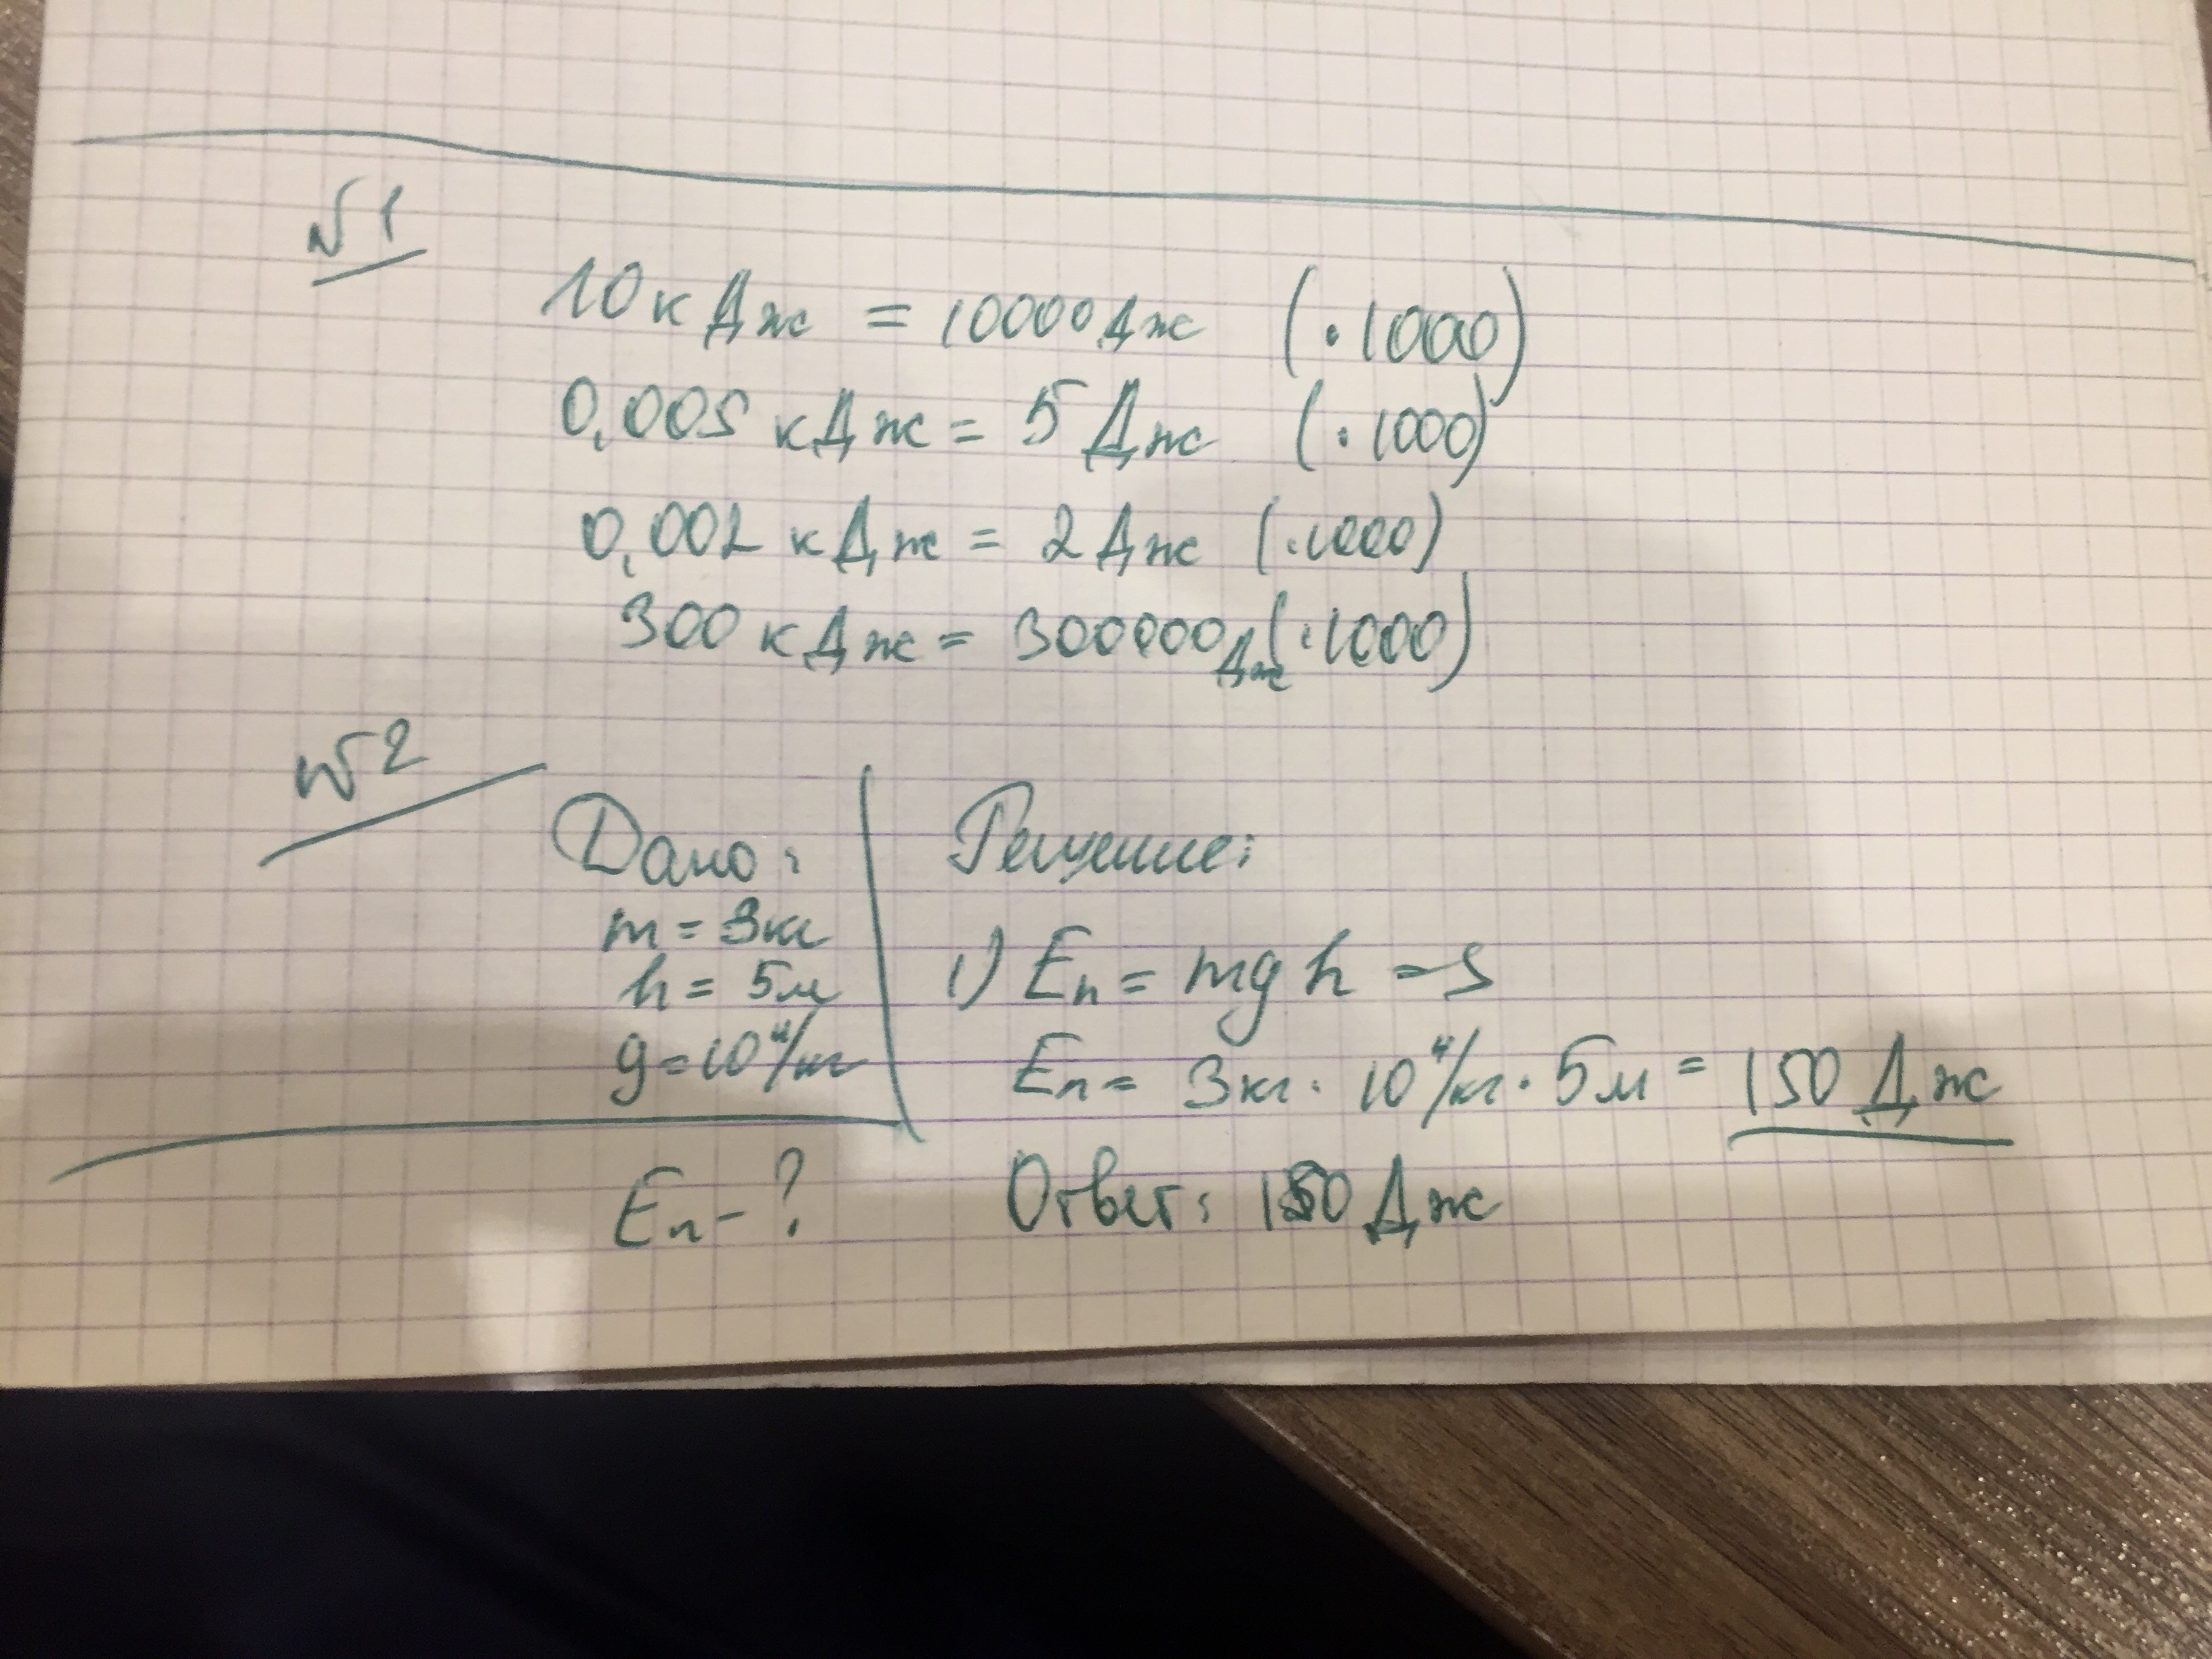 №1
10 кДж = 10000 Дж (·1000)
0,005 кДж = 5 Дж (·1000)
0,002 кДж = 2 Дж (·1000)
300 кДж = 300000 Дж (·1000)
№2
Дано:
m = 3кг
h = 5м
g = 10 Н/кг
Eп - ?
Решение:
1) Eп = mgh =>
Eп = 3кг · 10 Н/кг · 5м = 150 Дж
Ответ: 150 Дж